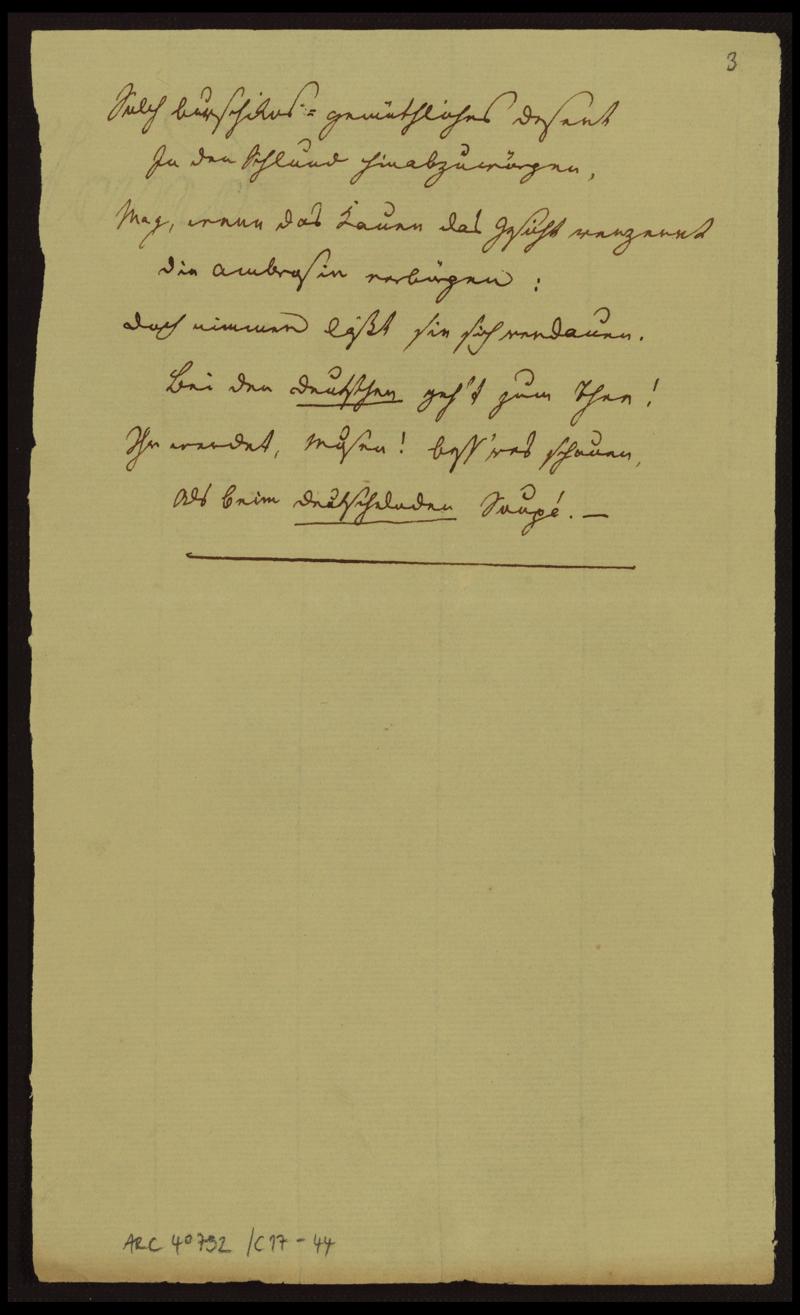 3
Solch burschikos-gemüthliches Desert
In den Schlund hinabzuwürgen,
Mag, wenn das Kauen das Gesicht verzerrt
Die Ambrosie verbürgen:
Doch nimmer läßt sie sich verdauen.
Bei den Deutschen geh't zum Thee!
Ihr werdet, Musen! bess'res schauen,
Als beim deutschelnden Soupé. —
ARC 4° 792 /C17-44